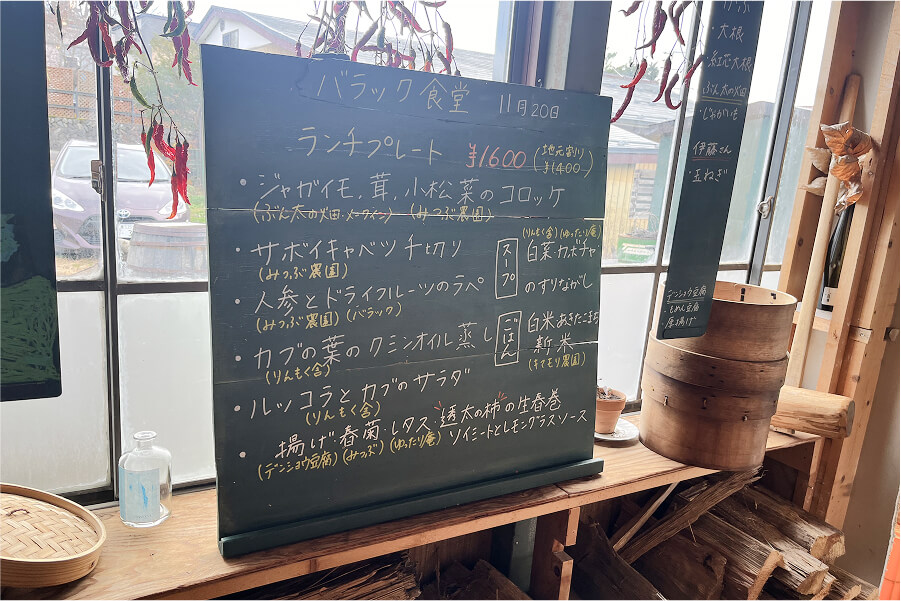 バラック食堂 11月20日
ランチプレート ¥1600 (地元割り ¥1400)
・ジャガイモ、茸、小松菜のコロッケ
(ぶん太の畑・メークイン) (みつぶ農園)
・サボイキャベツ千切り
(みつぶ農園)
・人参とドライフルーツのラペ
(みつぶ農園) (バラック)
・カブの葉のクミンオイル蒸し
(りんもく舎)
・ルッコラとカブのサラダ
(りんもく舎)
・揚げ春菊・レタス・透太の柿の生春巻
(デンショウ豆腐) (みつぶ) (ゆったり庵) ソイミートとレモングラスソース
スープ
(りんもく舎) (ゆったり庵)
白菜・カボチャ
のすりながし
ごはん
白米あきたこまち
新米
(キマモリ農園)
・大根
・紅芯大根
ぶん太の畑
・じゃがいも
伊藤さん
・玉ねぎ
デンショウ豆腐
・もめん豆腐
厚揚げ